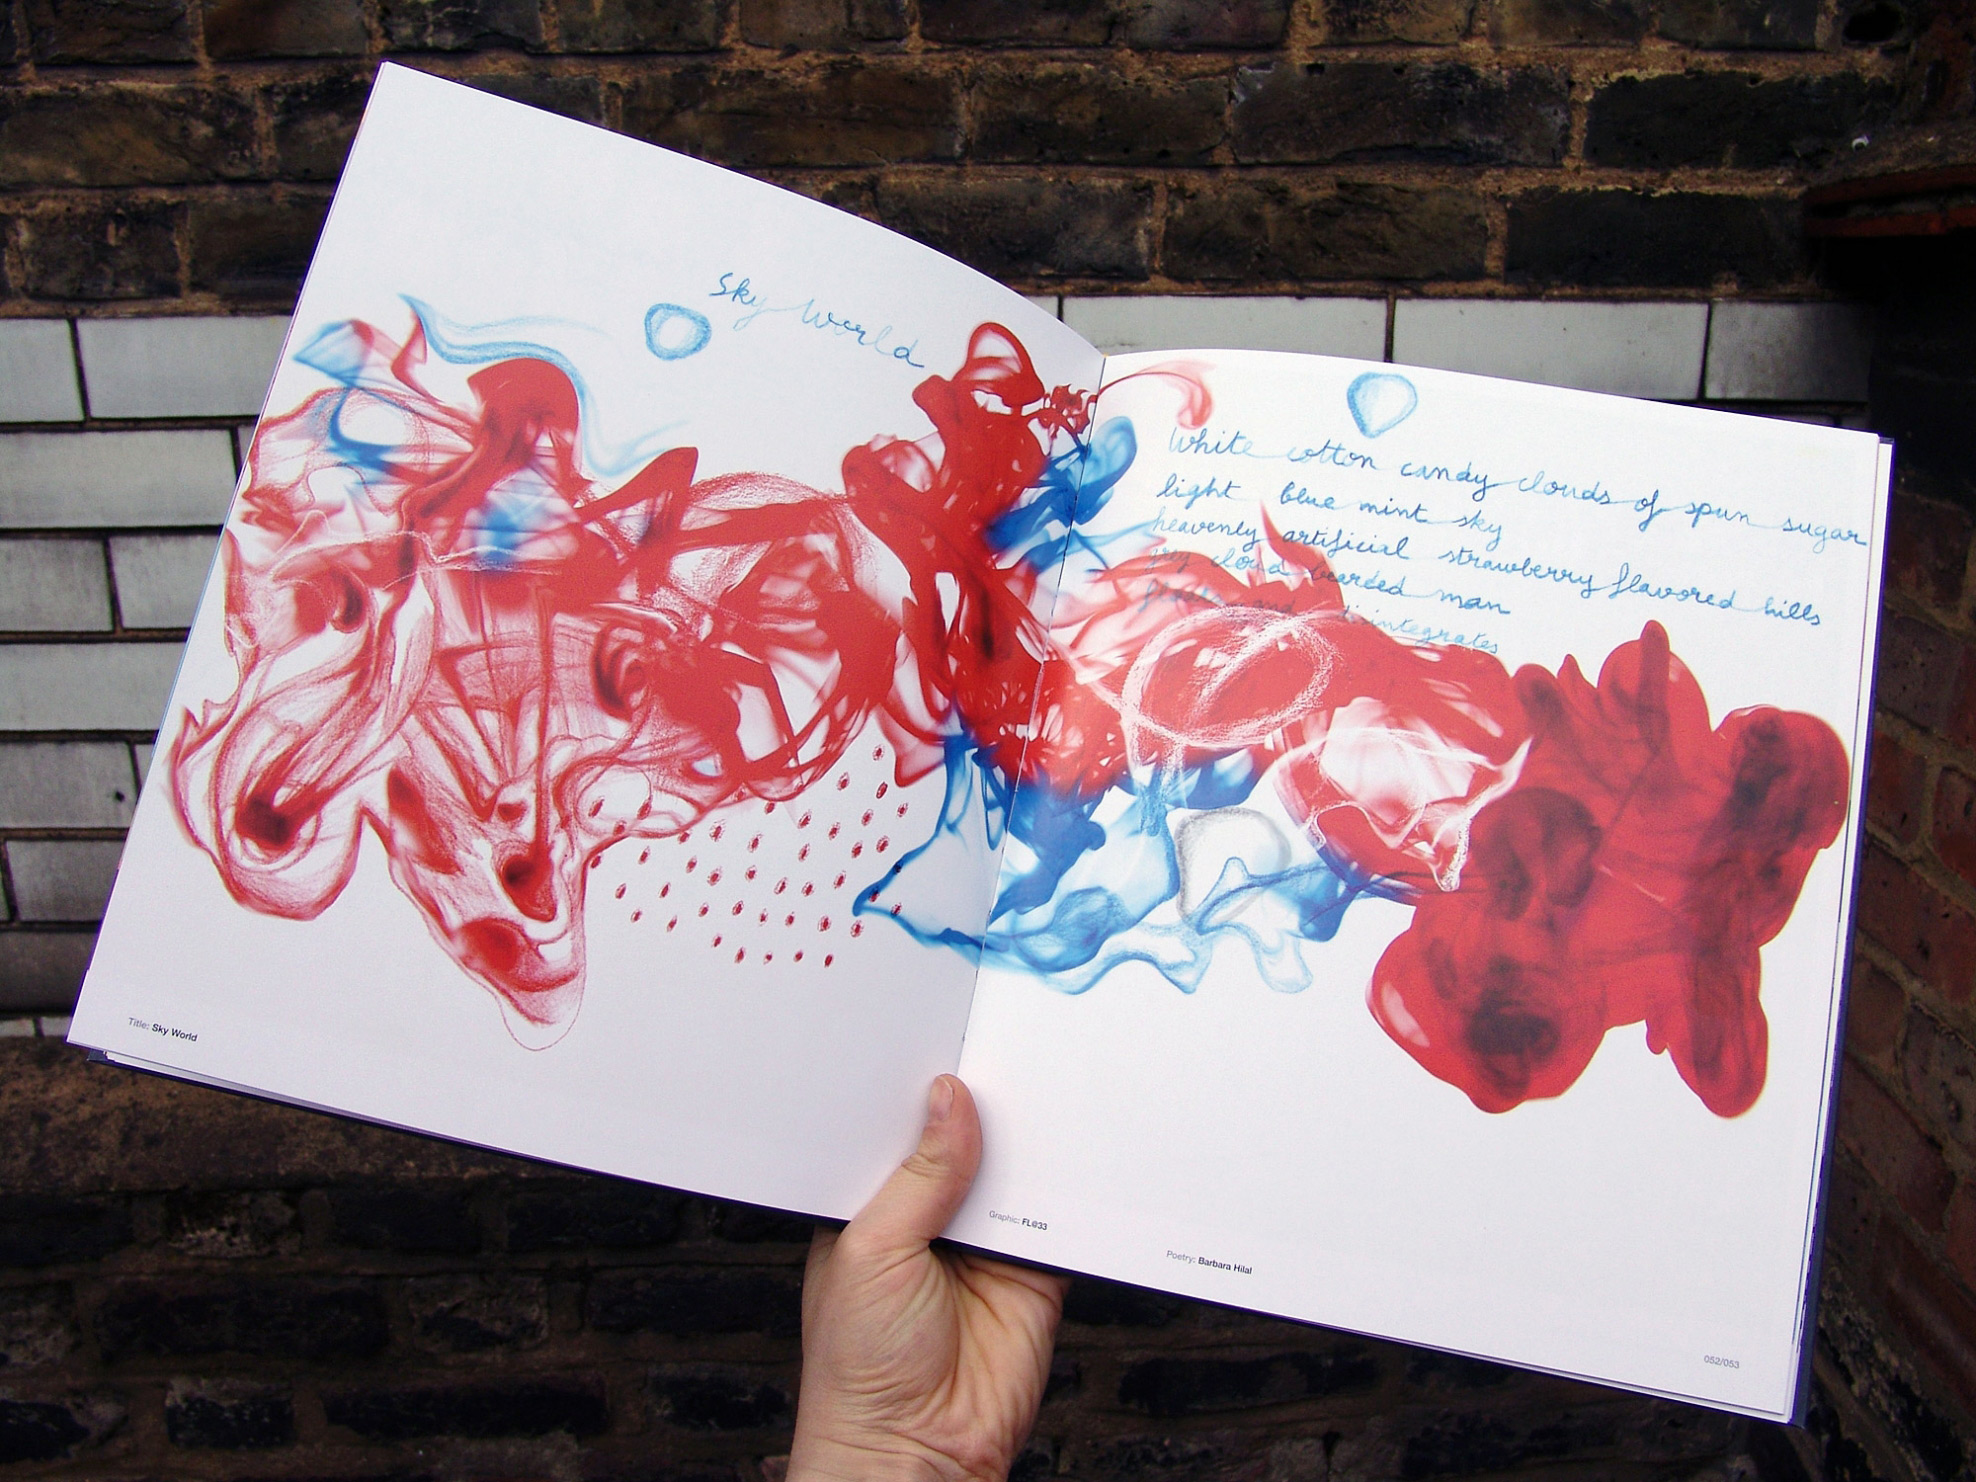 Sky World
White cotton candy clouds of spun sugar
light blue mint sky
heavenly artificial strawberry flavored hills
cloud bearded man
and disintegrates
Title: Sky World
Graphic: FL@33
Poetry: Barbara Hilal
052/053